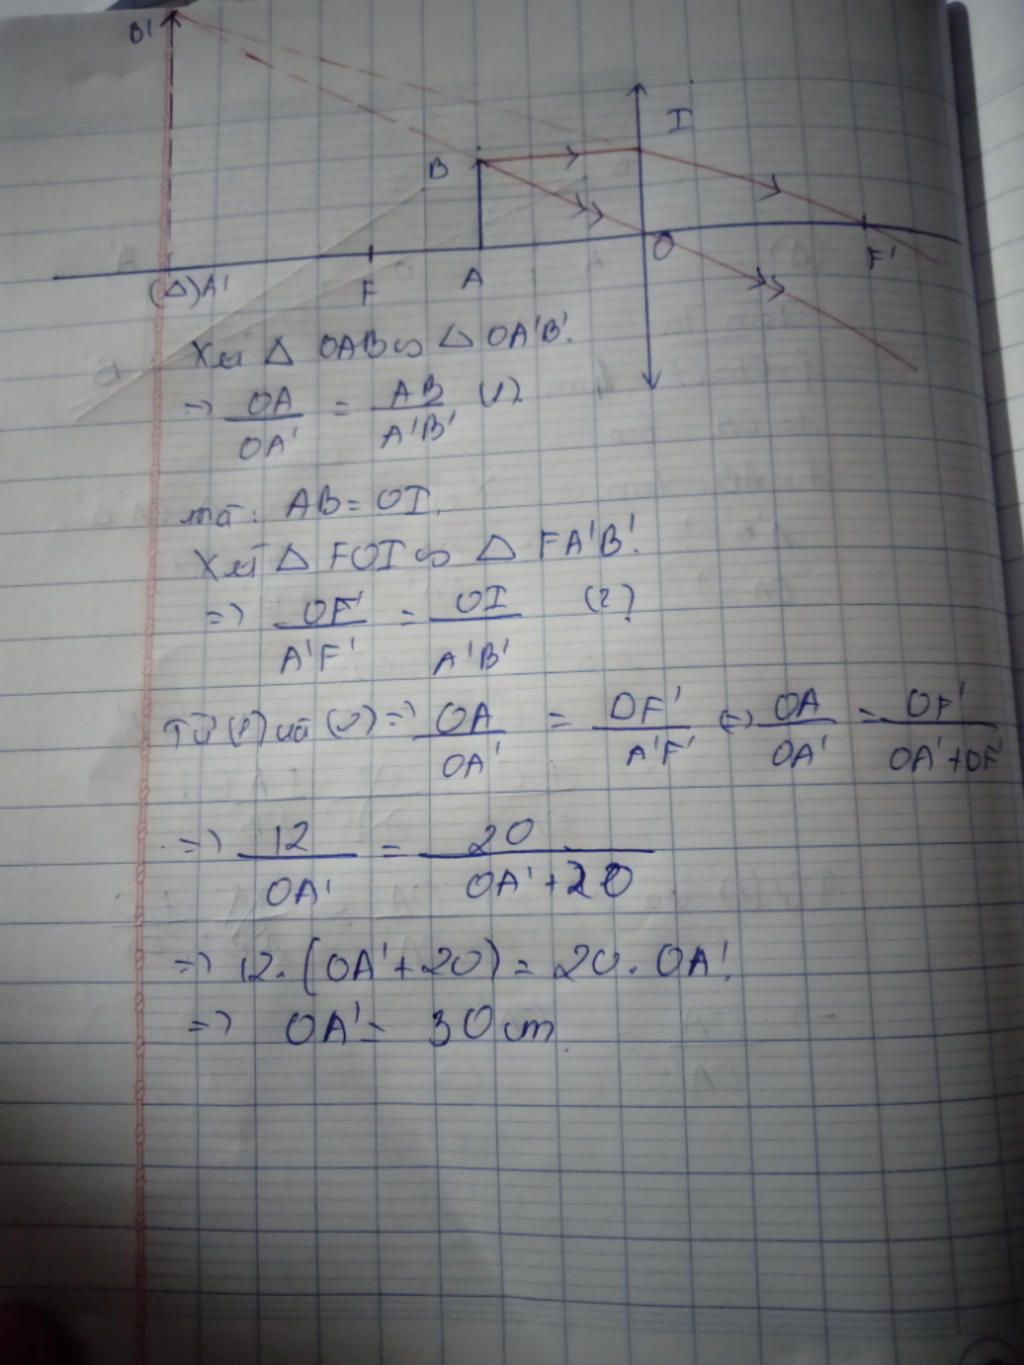 B'
I
B
O
F'
(Δ)A'
F
A
Xét Δ OAB ∽ Δ OA'B'.
=> OA/OA' = AB/A'B' (1)
mà: AB = OI.
Xét Δ FOI ∽ Δ FA'B'.
=> OF'/A'F' = OI/A'B' (2)
Từ (1) và (2) => OA/OA' = OF'/A'F' <=> OA/OA' = OF'/OA'+OF
=> 12/OA' = 20/OA'+20
=> 12.(OA'+20) = 20.OA'
=> OA' = 30cm